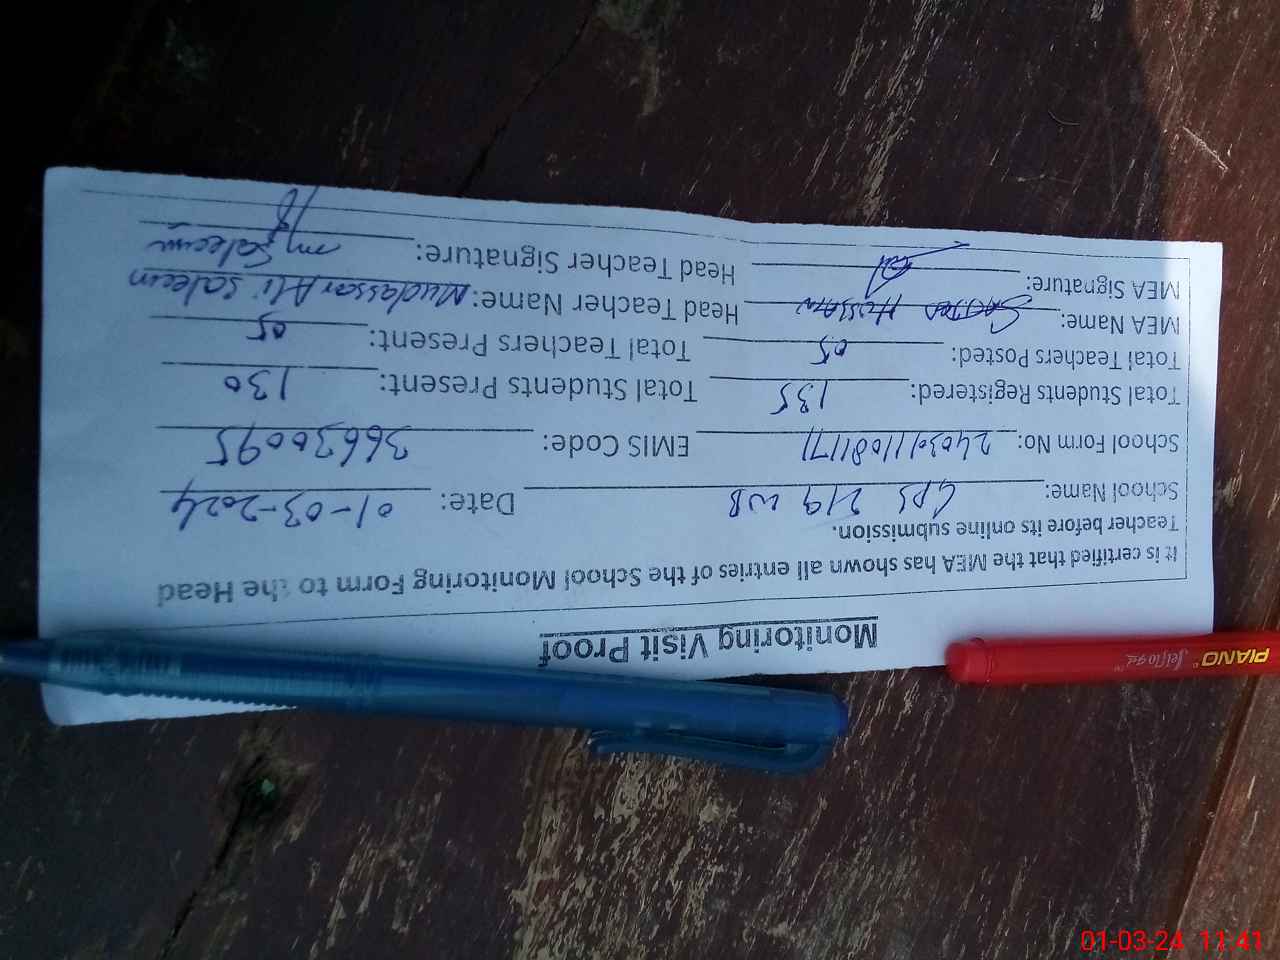 Monitoring Visit Proof
It is certified that the MEA has shown all entries of the School Monitoring Form to the Head
Teacher before its online submission.
School Name: GPS 219 WB Date: 01-03-2024
School Form No: EMIS Code: 36630095
Total Students Registered: 135 Total Students Present: 130
Total Teachers Posted: 05 Total Teachers Present: 05
MEA Name: Hussain Head Teacher Name: Mudassar Ali Saleem
MEA Signature: Head Teacher Signature: m Saleem
PIANO
01-03-24 11:41